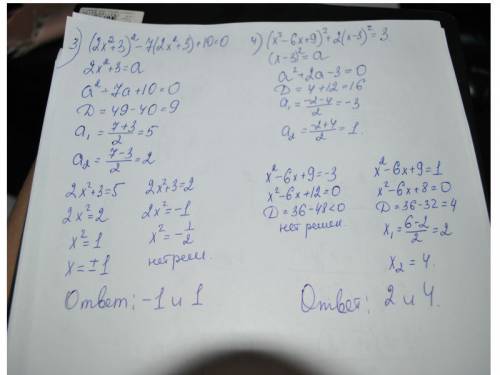 3) (2x²+3)²-7(2x²+3)+10=0
2x²+3=a
a²-7a+10=0
D=49-40=9
a₁=(7+3)/2=5
a₂=(7-3)/2=2
2x²+3=5
2x²=2
x²=1
x=±1
2x²+3=2
2x²=-1
x²=-1/2
нет реш.
Ответ: -1 и 1
4) (x²-6x+9)²+2(x-3)²=3
(x-3)²=a
a²+2a-3=0
D=4+12=16
a₁=(-2-4)/2=-3
a₂=(-2+4)/2=1.
x²-6x+9=-3
x²-6x+12=0
D=36-48<0
нет решен.
x²-6x+9=1
x²-6x+8=0
D=36-32=4
x₁=(6-2)/2=2
x₂=4.
Ответ: 2 и 4.